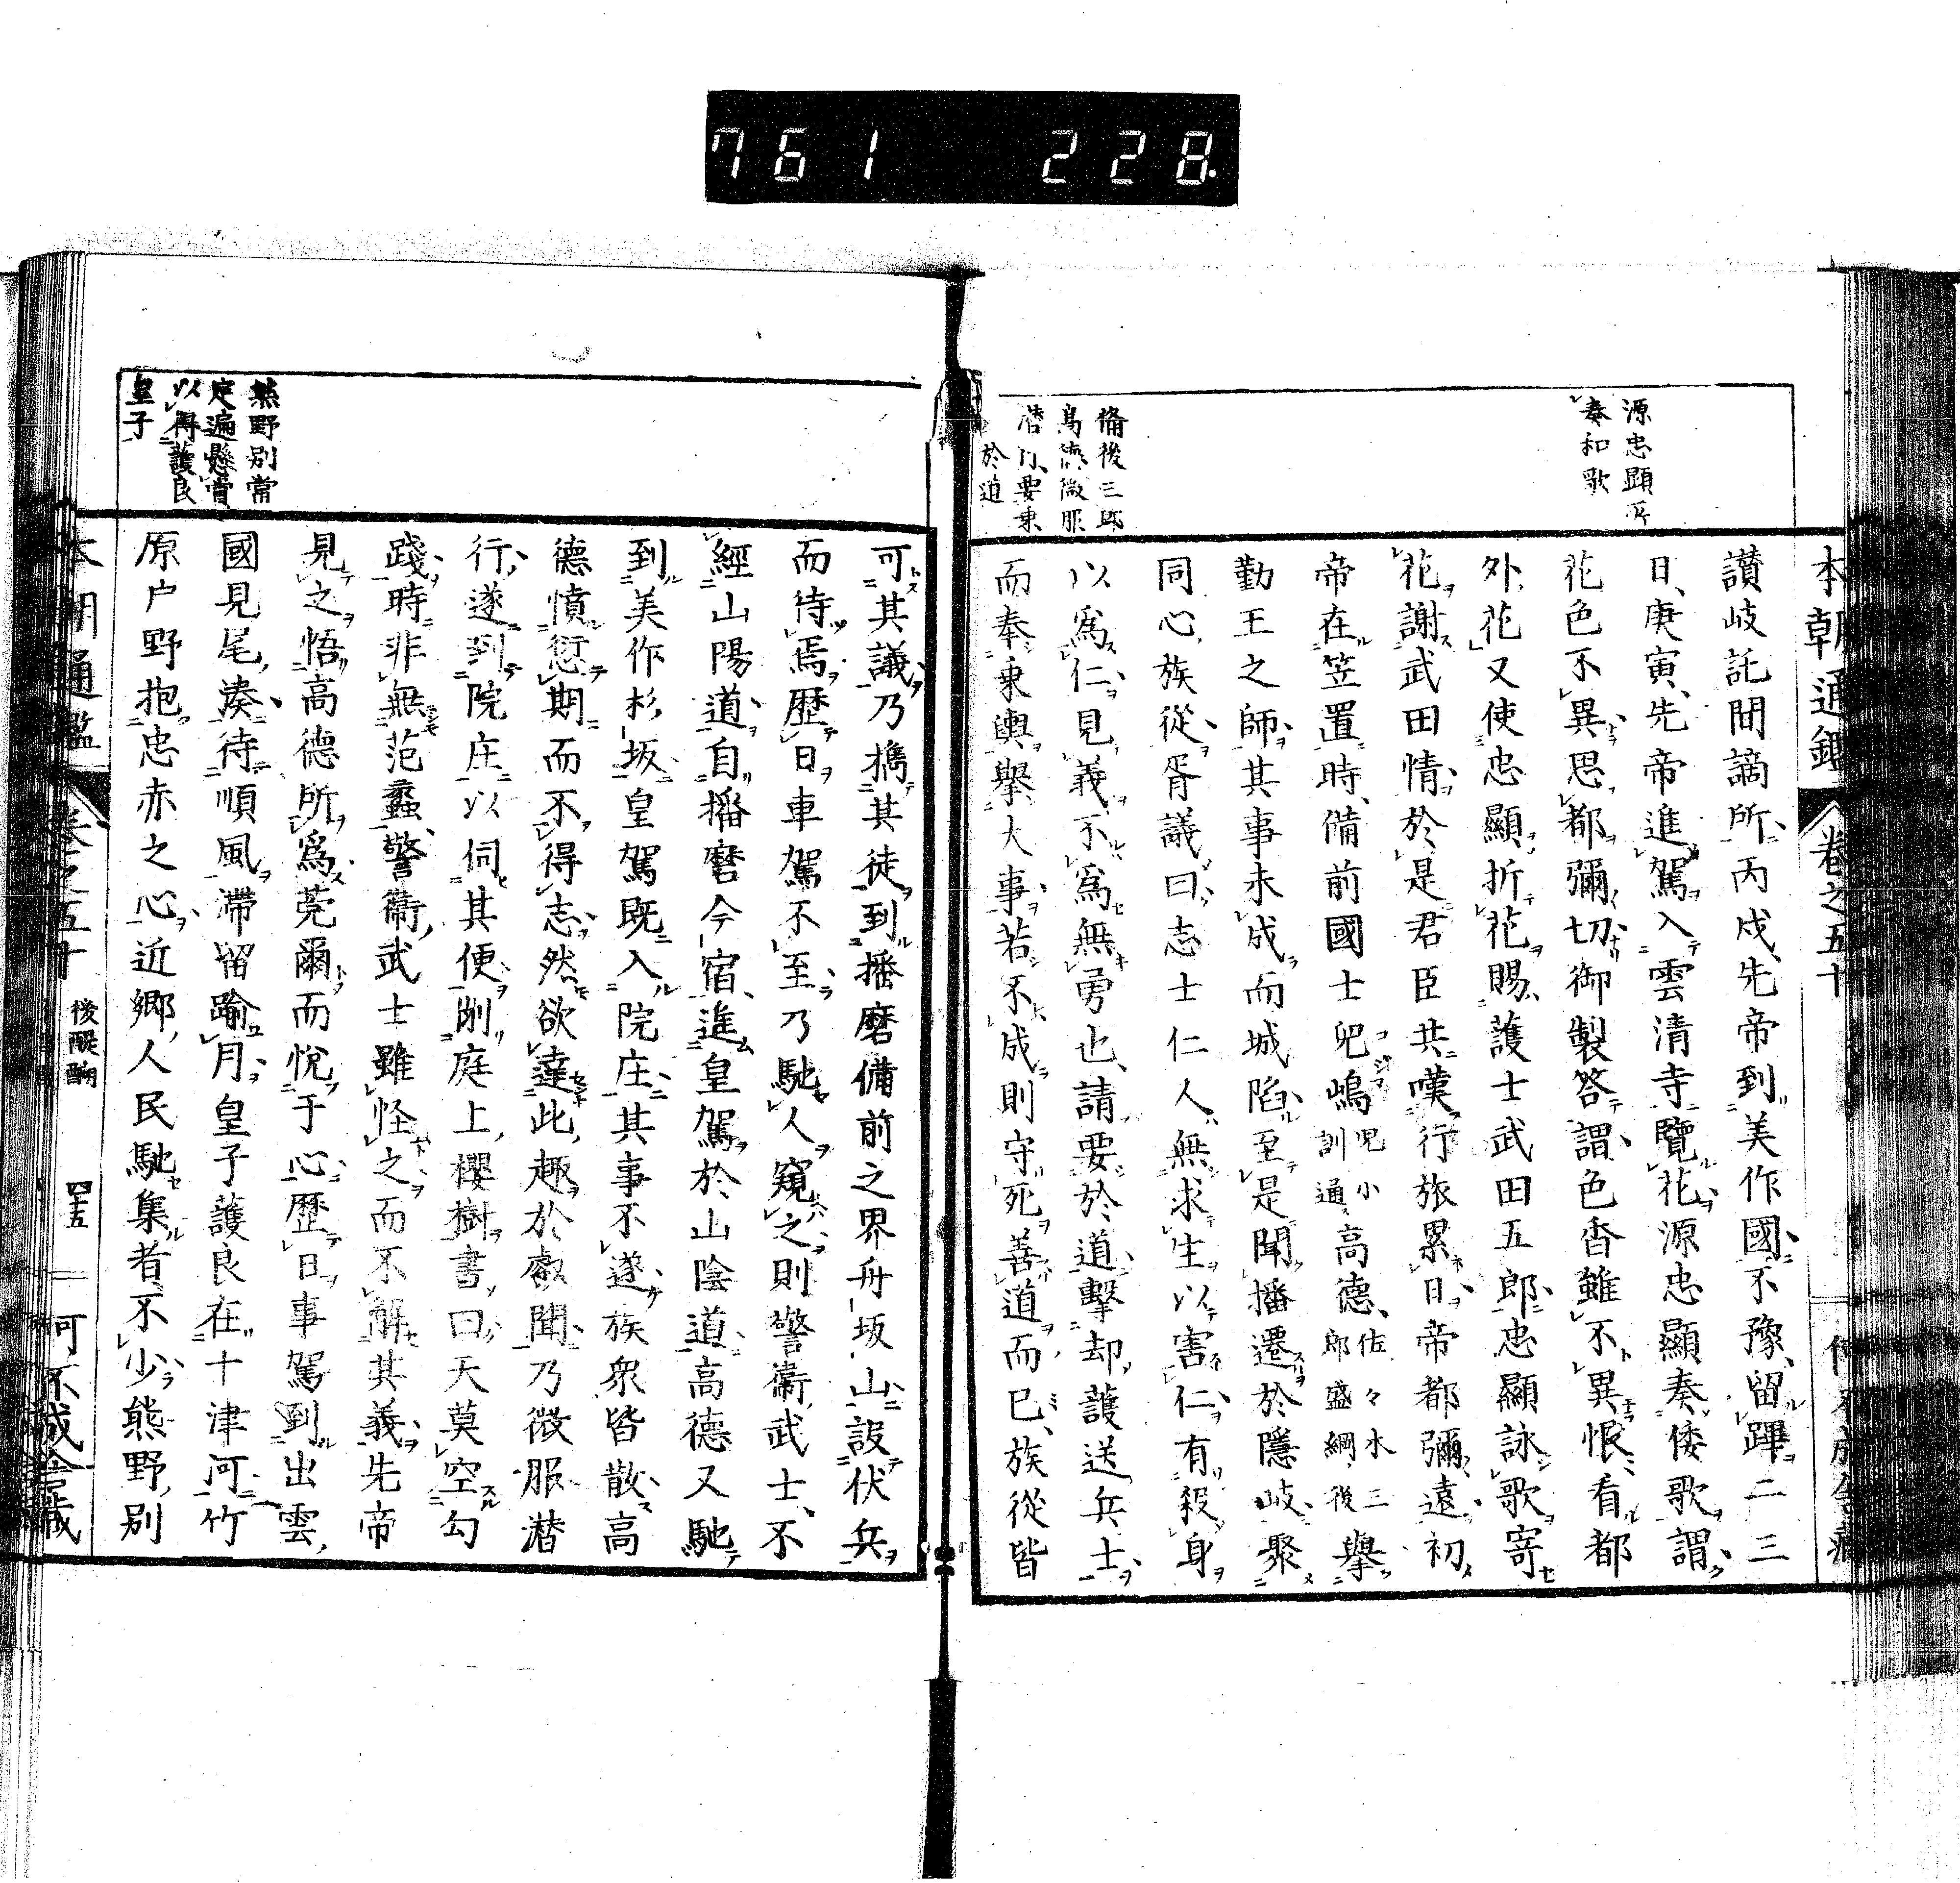 761 228.
源忠顯所
奏和歌
備後三郎
高德微服
潛行要乘
於道
本朝通鑑 卷之五十
讃岐託間謫所丙戌先帝到美作國不豫留蹕二三
日庚寅先帝進駕入雲清寺覽花源忠顯奏倭歌謂
花色不異思都彌切御製答謂色香雖不異恨看都
外花又使忠顯折花賜護士武田五郎忠顯詠歌寄
花謝武田情於是君臣共嘆行旅累日帝都彌遠初
帝在笠置時備前國士兒嶋兒小訓通高德佐々木三郎盛綱後擧
勤王之師其事未成而城陷至是聞播遷於隱岐聚
同心族從胥議曰志士仁人無求生以害仁有殺身
以爲仁見義不爲無勇也請要於道擊却護送兵士
而奉乘輿擧大事若不成則守死善道而已族從皆
可其議乃擕其徒到播磨備前之界舟坂山設伏兵
而待焉歷日車駕不至乃馳人窺之則警衞武士不
經山陽道自播磨今宿進皇駕於山陰道高德又馳
到美作杉坂皇駕既入院庄其事不遂族衆皆散高
德憤愆期而不得志然欲達此趣於叡聞乃微服潛
行遂到院庄以伺其便削庭上櫻樹書曰天莫空勾
踐時非無范蠡警衞武士雖怪之而不解其義先帝
見之悟高德所爲莞爾而悅于心歷日事駕到出雲
國見尾湊待順風滯留踰月皇子護良在十津河竹
原戸野抱忠赤之心近鄕人民馳集者不少熊野別
熊野別當
定遍懸賞
以得護良
皇子
本朝通鑑 卷之五十 後醍醐 四十五